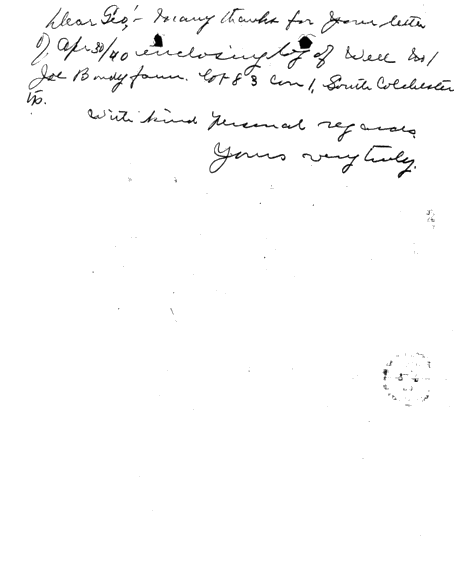 Dear Geo; - Many thanks for your letter
of Apr 30/40 enclosing log of Well No 1
Joe Bondy farm. Lot 83 Con 1, South Colchester
tp.
With kind personal regards
Yours very truly.